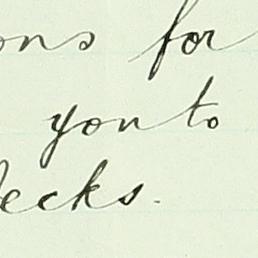 ons for
you to
ecks.